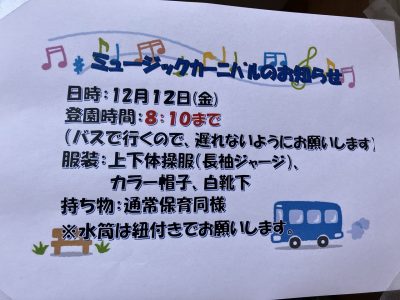 ミュージックカーニバルのお知らせ
日時：12月12日(金)
登園時間：8：10まで
(バスで行くので、遅れないようにお願いします)
服装：上下体操服(長袖ジャージ)、
カラー帽子、白靴下
持ち物：通常保育同様
※水筒は紐付きでお願いします。